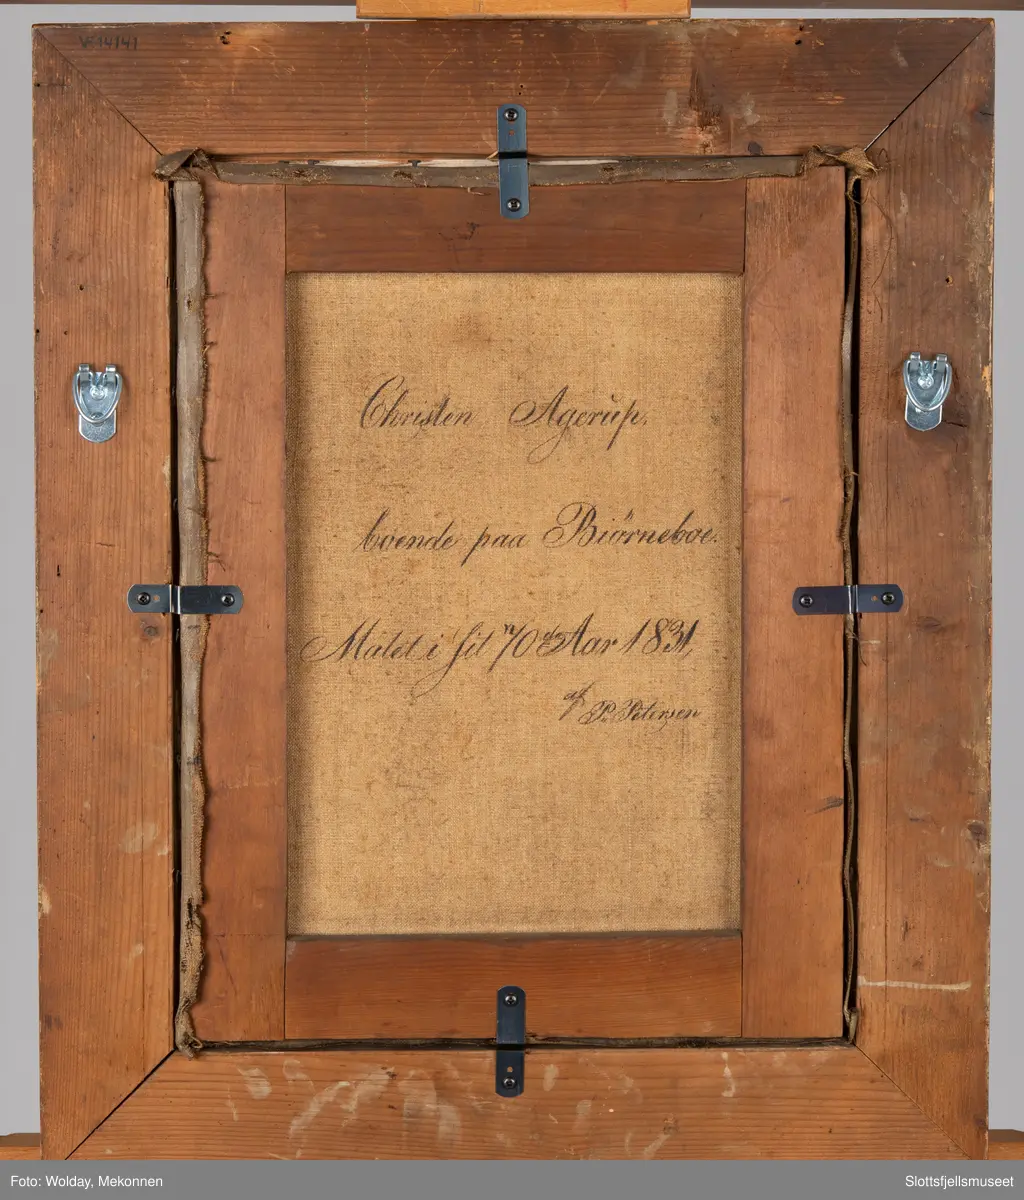 VF 14141
Christen Agerup,
boende paa Biörneboe.
Malet i sit 70de Aar 1831,
af P. Petersen
Foto: Wolday, Mekonnen
Slottsfjellsmuseet